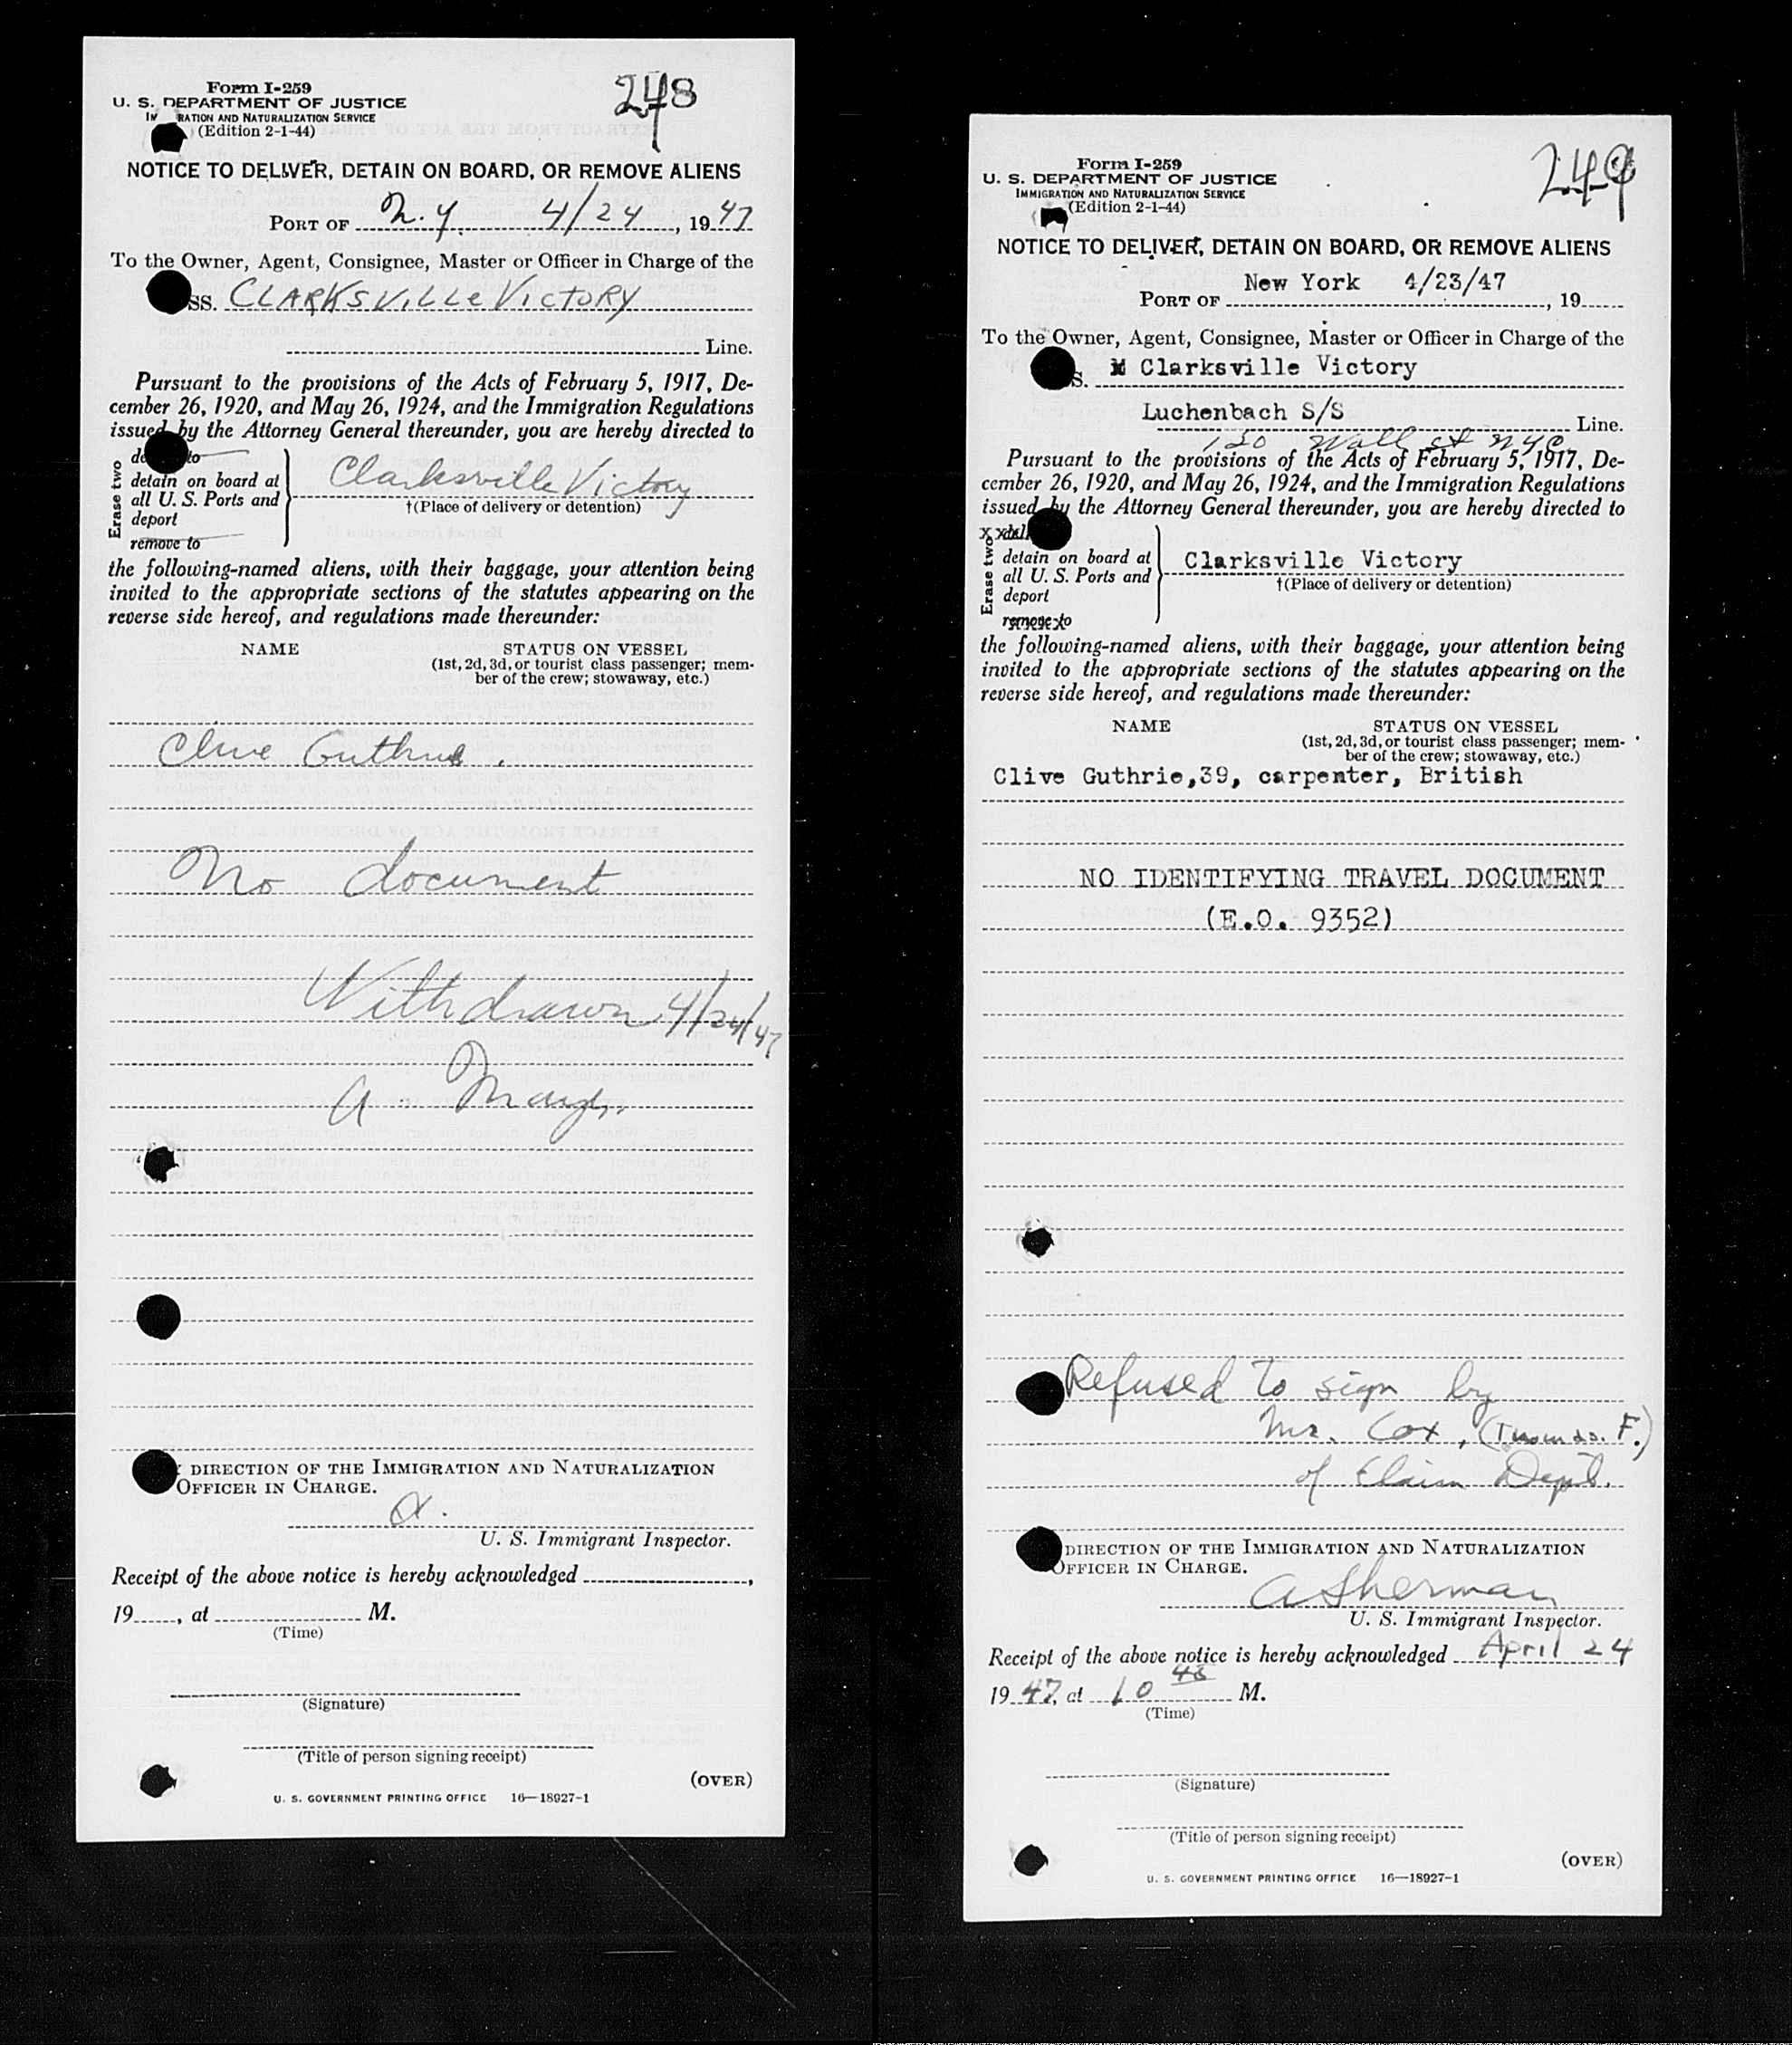 Form I-259
U. S. DEPARTMENT OF JUSTICE
RATION AND NATURALIZATION SERVICE
(Edition 2-1-44)
248
NOTICE TO DELIVER, DETAIN ON BOARD, OR REMOVE ALIENS
PORT OF N.Y. 4/24, 1947
To the Owner, Agent, Consignee, Master or Officer in Charge of the
SS. CLARKSVILLE VICTORY
Line.
Pursuant to the provisions of the Acts of February 5, 1917, De-
cember 26, 1920, and May 26, 1924, and the Immigration Regulations
issued by the Attorney General thereunder, you are hereby directed to
Erase two
to
detain on board at
all U. S. Ports and
deport
remove to
Clarksville Victory
†(Place of delivery or detention)
the following-named aliens, with their baggage, your attention being
invited to the appropriate sections of the statutes appearing on the
reverse side hereof, and regulations made thereunder:
NAME STATUS ON VESSEL
(1st, 2d, 3d, or tourist class passenger; mem-
ber of the crew; stowaway, etc.)
Clive Guthrie.
No document
Withdrawn 4/24/47
A.
DIRECTION OF THE IMMIGRATION AND NATURALIZATION
OFFICER IN CHARGE.
U. S. Immigrant Inspector.
Receipt of the above notice is hereby acknowledged ,
19 , at M.
(Time)
(Signature)
(Title of person signing receipt)
(OVER)
U. S. GOVERNMENT PRINTING OFFICE 16—18927-1
Form I-259
U. S. DEPARTMENT OF JUSTICE
IMMIGRATION AND NATURALIZATION SERVICE
(Edition 2-1-44)
249
NOTICE TO DELIVER, DETAIN ON BOARD, OR REMOVE ALIENS
New York 4/23/47
PORT OF , 19
To the Owner, Agent, Consignee, Master or Officer in Charge of the
S. M Clarksville Victory
Luchenbach S/S Line.
120 Wall st NYC
Pursuant to the provisions of the Acts of February 5, 1917, De-
cember 26, 1920, and May 26, 1924, and the Immigration Regulations
issued by the Attorney General thereunder, you are hereby directed to
Erase two
detain on board at
all U. S. Ports and
deport
remove to
Clarksville Victory
†(Place of delivery or detention)
the following-named aliens, with their baggage, your attention being
invited to the appropriate sections of the statutes appearing on the
reverse side hereof, and regulations made thereunder:
NAME STATUS ON VESSEL
(1st, 2d, 3d, or tourist class passenger; mem-
ber of the crew; stowaway, etc.)
Clive Guthrie,39, carpenter, British
NO IDENTIFYING TRAVEL DOCUMENT
(E.O. 9352)
Refused to sign by
Mr. Cox,
of Claim Dept.
DIRECTION OF THE IMMIGRATION AND NATURALIZATION
OFFICER IN CHARGE.
A Sherman
U. S. Immigrant Inspector.
Receipt of the above notice is hereby acknowledged April 24
1947, at 10 48 M.
(Time)
(Signature)
(Title of person signing receipt)
(OVER)
U. S. GOVERNMENT PRINTING OFFICE 16—18927-1